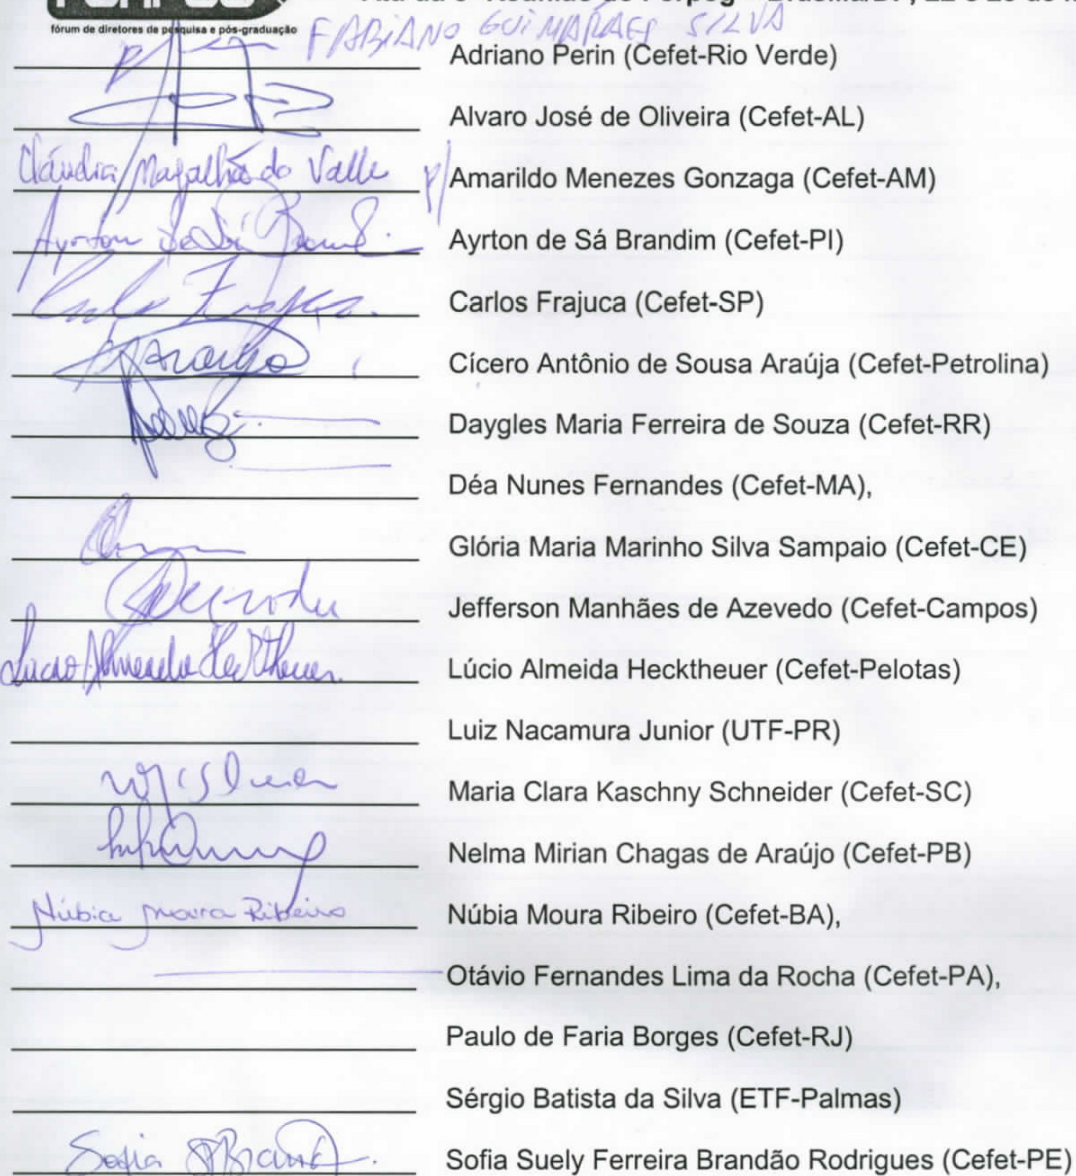 fórum de diretores de pesquisa e pós-graduação
FABIANO GUIMARAES SILVA
Adriano Perin (Cefet-Rio Verde)
Alvaro José de Oliveira (Cefet-AL)
Cláudia Magalhães do Valle p/ Amarildo Menezes Gonzaga (Cefet-AM)
Ayrton de Sá Brandim (Cefet-PI)
Carlos Frajuca (Cefet-SP)
Araujo Cícero Antônio de Sousa Araúja (Cefet-Petrolina)
Daygles Maria Ferreira de Souza (Cefet-RR)
Déa Nunes Fernandes (Cefet-MA),
Glória Maria Marinho Silva Sampaio (Cefet-CE)
Jefferson Manhães de Azevedo (Cefet-Campos)
Lucio Almeida Hecktheuer Lúcio Almeida Hecktheuer (Cefet-Pelotas)
Luiz Nacamura Junior (UTF-PR)
Maria Clara Kaschny Schneider (Cefet-SC)
Nelma Mirian Chagas de Araújo (Cefet-PB)
Núbia Moura Ribeiro Núbia Moura Ribeiro (Cefet-BA),
Otávio Fernandes Lima da Rocha (Cefet-PA),
Paulo de Faria Borges (Cefet-RJ)
Sérgio Batista da Silva (ETF-Palmas)
Sofia Sofia Suely Ferreira Brandão Rodrigues (Cefet-PE)